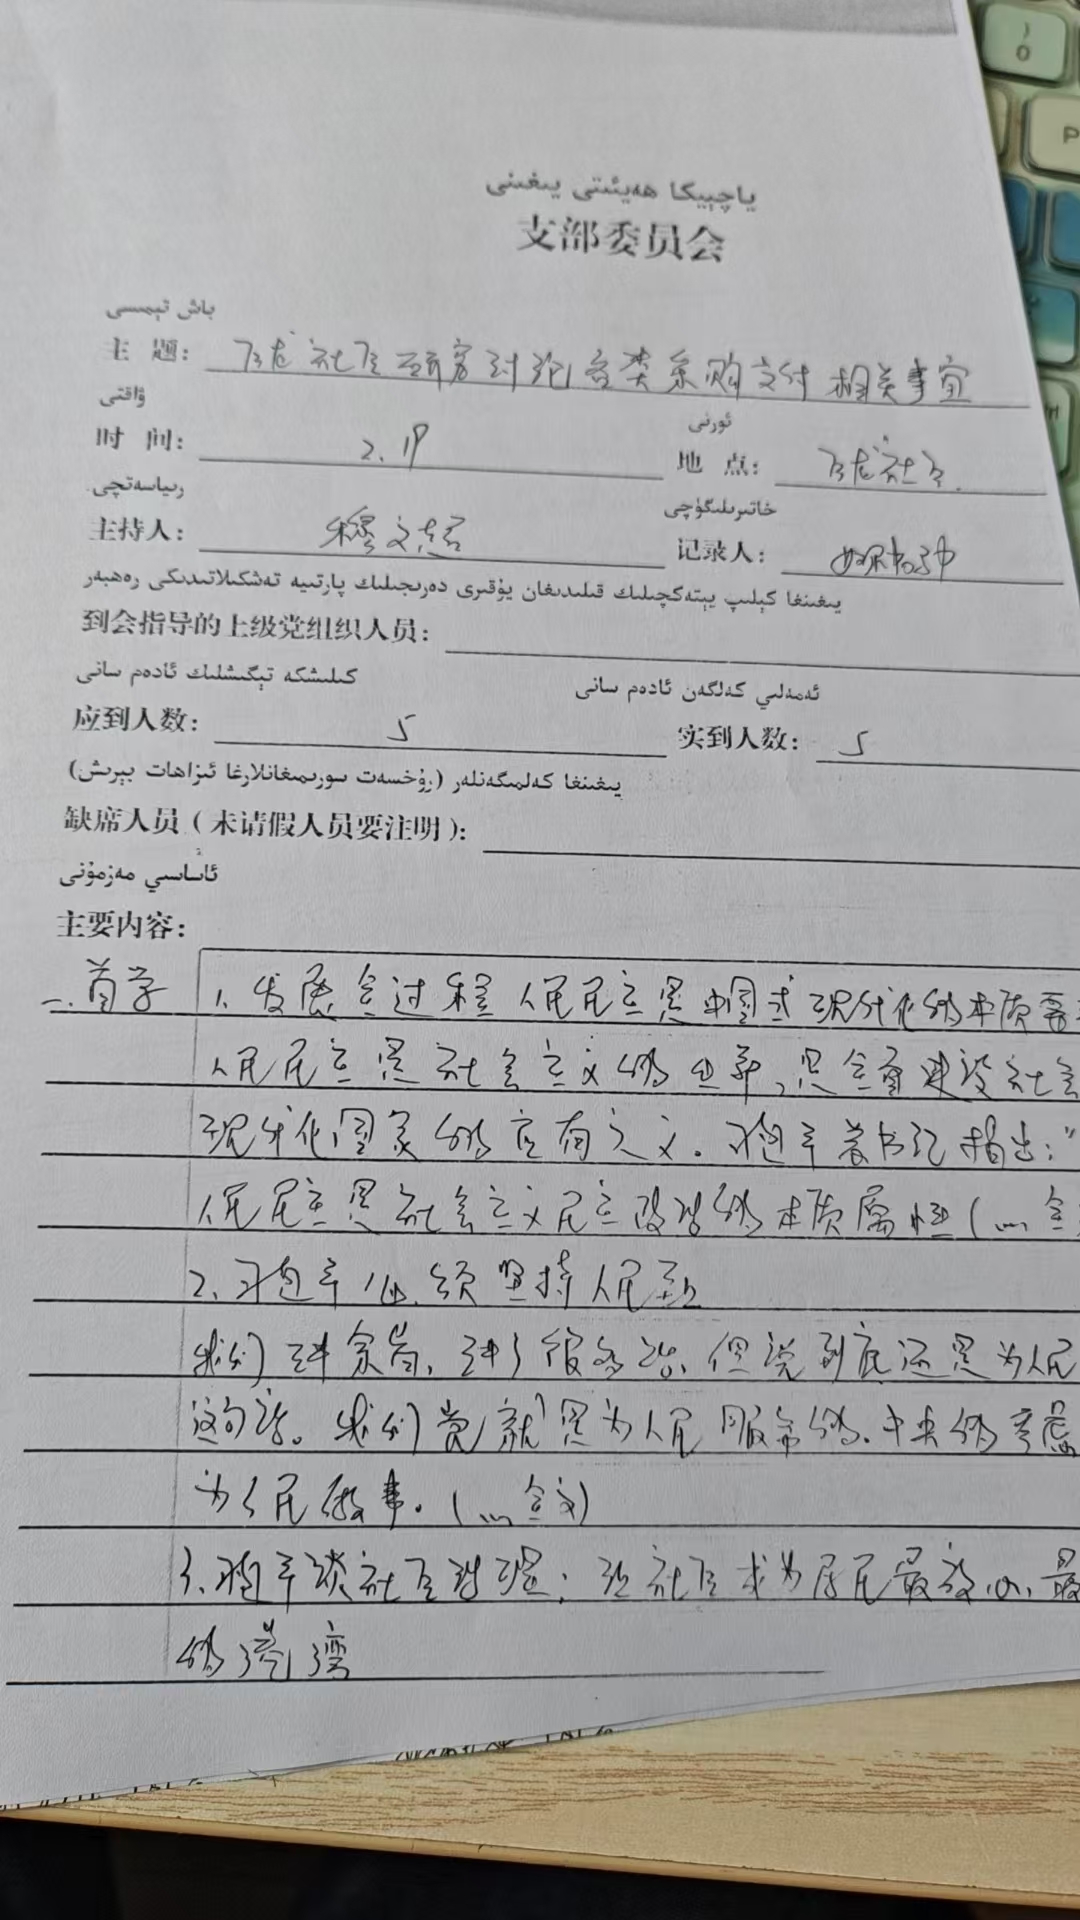 ياچېيكا ھەيئىتى يىغىنى
支部委员会
باش تېمىسى
主 题： 社区研究讨论各类采购支付相关事宜
ۋاقتى
时 间： 2.19
ئورنى
地 点： 社区
رىياسەتچى
主持人： 穆文志
خاتىرىلىگۈچى
记录人：
يىغىنغا كېلىپ يېتەكچىلىك قىلىدىغان يۇقىرى دەرىجىلىك پارتىيە تەشكىلاتىدىكى رەھبەر
到会指导的上级党组织人员：
كېلىشكە تېگىشلىك ئادەم سانى
应到人数： 5
ئەمەلىي كەلگەن ئادەم سانى
实到人数： 5
يىغىنغا كەلمىگەنلەر (رۇخسەت سورىمىغانلارغا ئىزاھات بېرىش)
缺席人员（未请假人员要注明）：
ئاساسىي مەزمۇنى
主要内容：
一.首学 1、发展全过程人民民主是中国式现代化的本质要
人民民主是社会主义的生命，是全面建设社会
现代化国家的应有之义。习近平总书记指出：“
人民民主是社会主义民主政治的本质属性（…全
2、习近平：必须坚持人民至上
我们讲宗旨，讲了很多话，但说到底还是为人民
这句话。我们党就是为人民服务的、中央的考虑
为人民做事。（…全文）
3、习近平谈社区治理：让社区成为居民最放心、最
的港湾